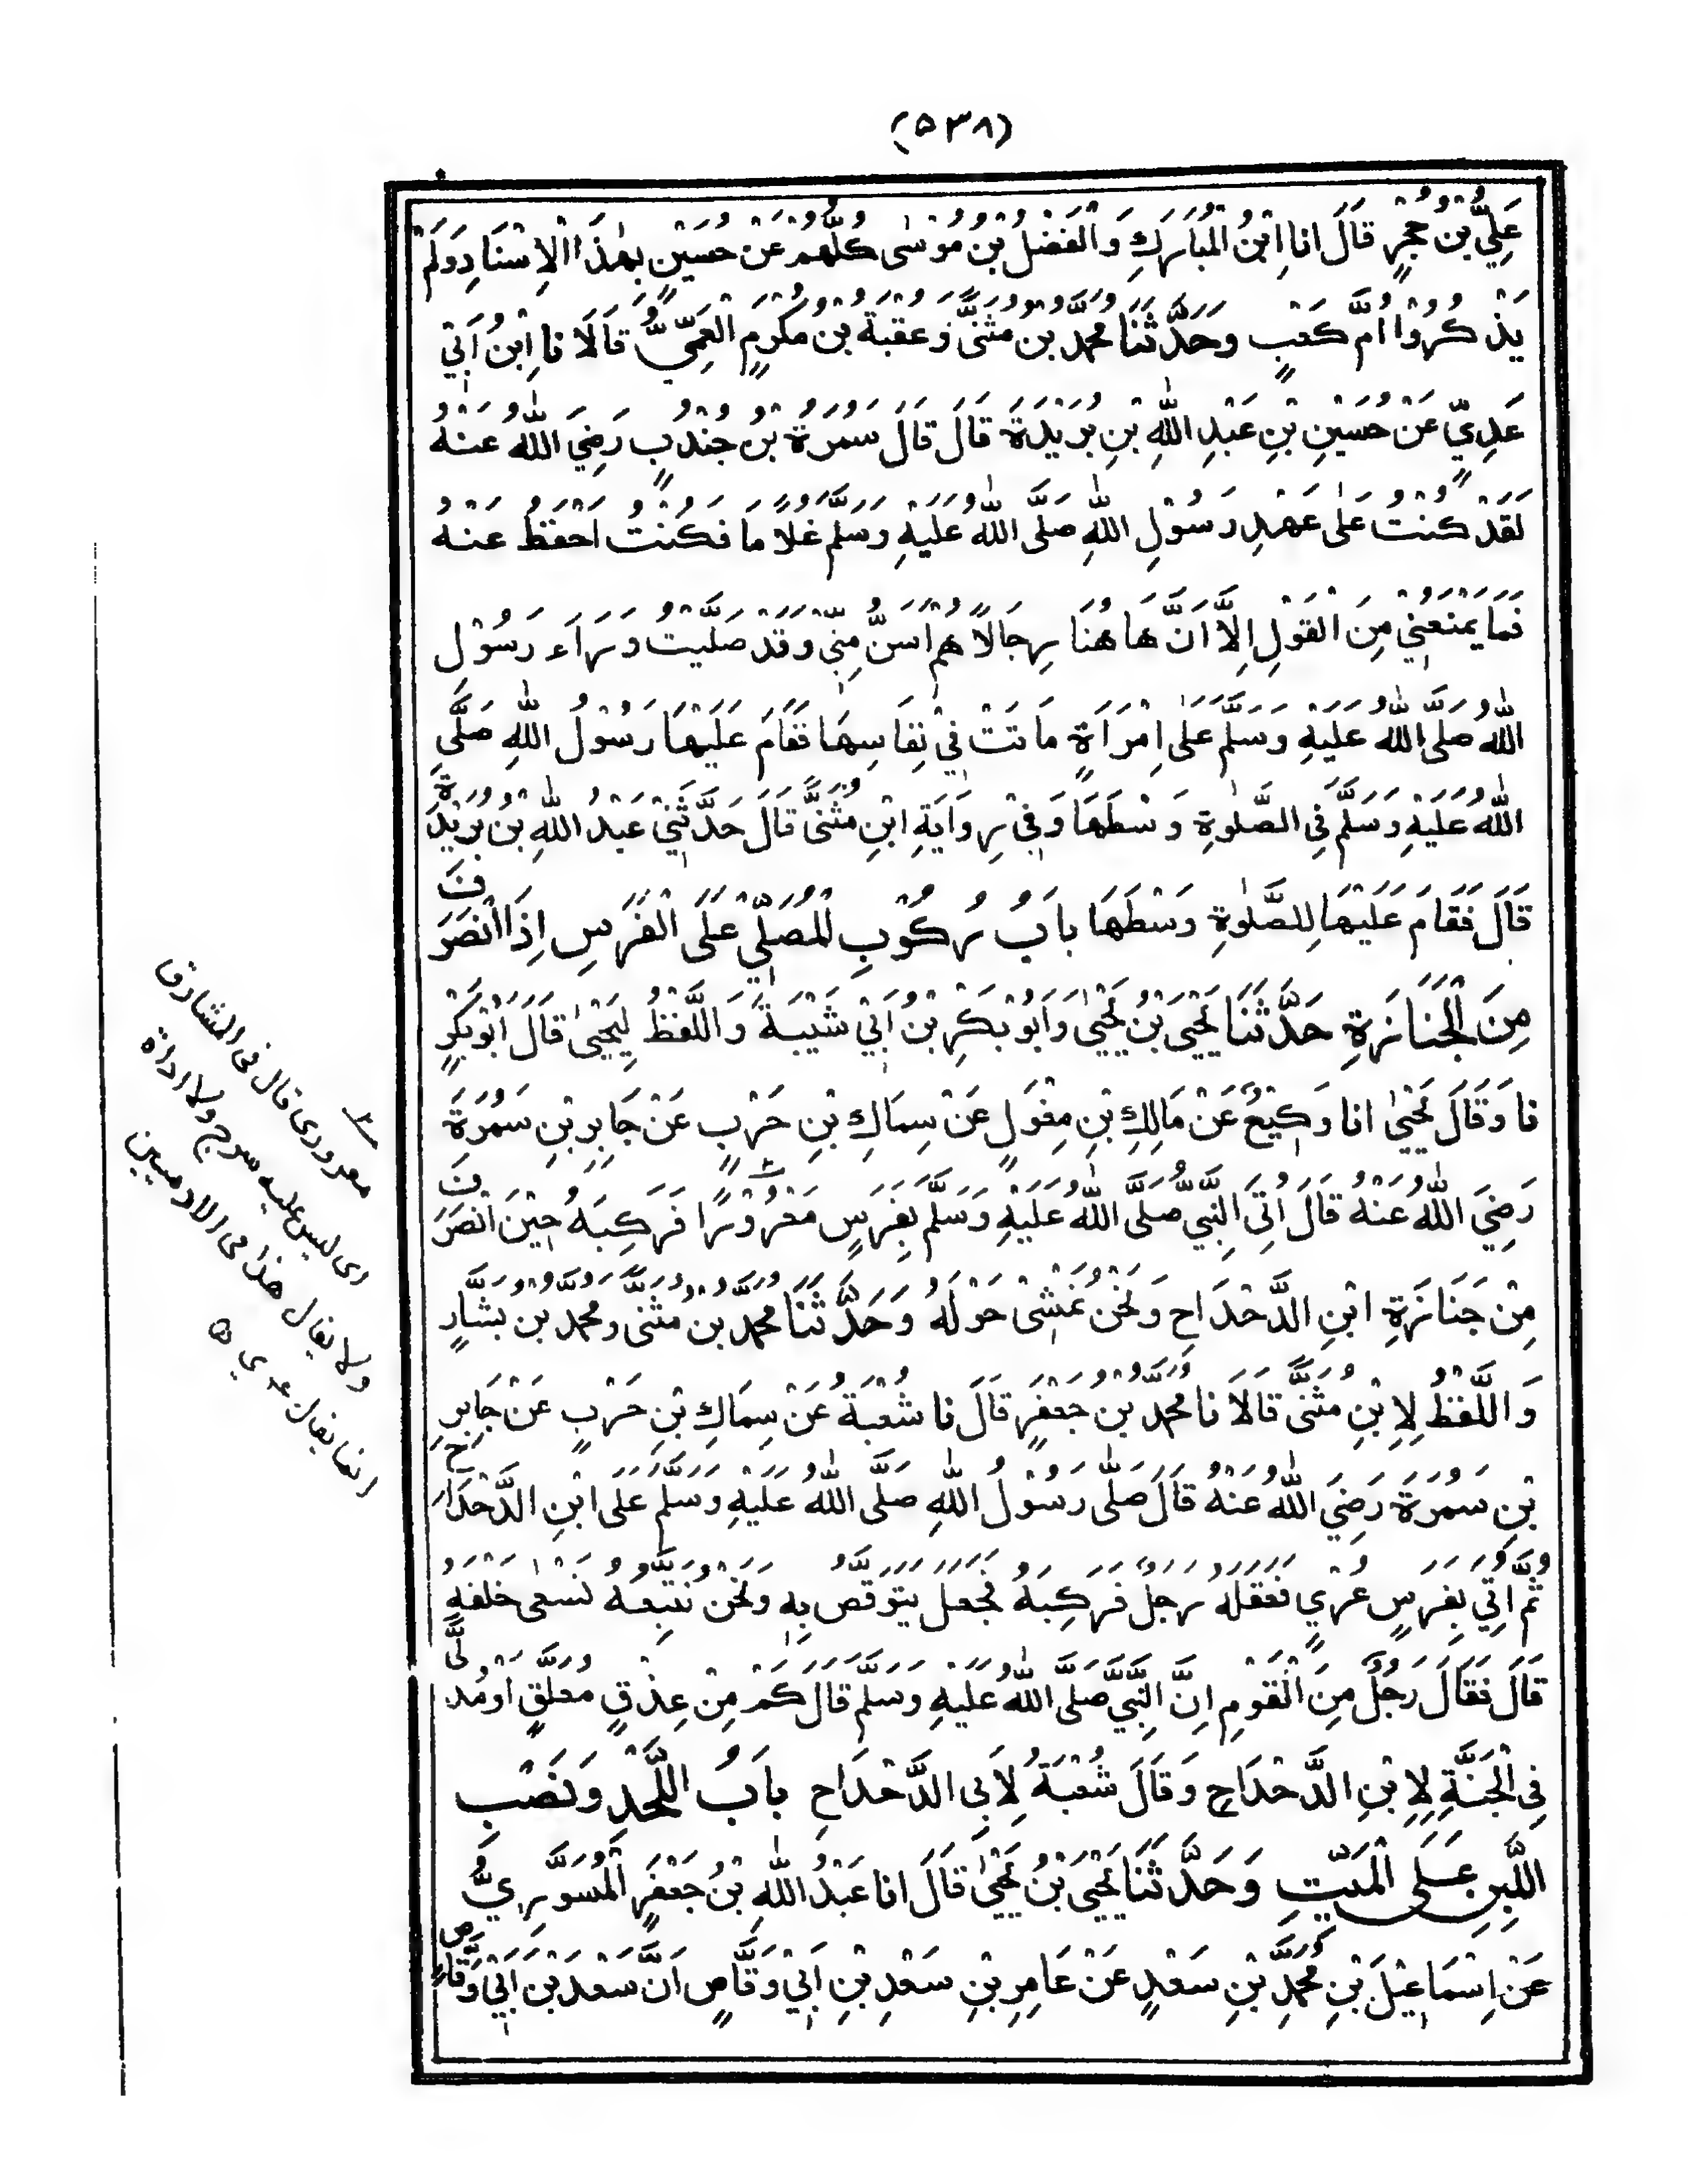 (۵۳۸)
عَلِيُّ بْنُ حُجْرٍ قَالَ انا اِبْنُ الْمُبَارَكِ وَالْفَضْلُ بْنُ مُوْسٰى كُلُّهُمْ عَنْ حُسَيْنٍ بِهٰذَا الْاِسْنَادِ وَلَمْ
يَذْكُرُوْا اُمَّ كَعْبٍ وَحَدَّثَنَا مُحَمَّدُ بْنُ مُثَنًّى وَعُقْبَةُ بْنُ مُكْرَمٍ الْعَمِّيُّ قَالَا نا اِبْنُ اَبِيْ
عَدِيٍّ عَنْ حُسَيْنِ بْنِ عَبْدِ اللّٰهِ بْنِ بُرَيْدَةَ قَالَ قَالَ سَمُرَةُ بْنُ جُنْدُبٍ رَضِيَ اللّٰهُ عَنْهُ
لَقَدْ كُنْتُ عَلٰى عَهْدِ رَسُوْلِ اللّٰهِ صَلَّى اللّٰهُ عَلَيْهِ وَسَلَّمَ غُلَامًا فَكُنْتُ اَحْفَظُ عَنْهُ
فَمَا يَمْنَعُنِيْ مِنَ الْقَوْلِ اِلَّا اَنَّ هَاهُنَا رِجَالًا هُمْ اَسَنُّ مِنِّيْ وَقَدْ صَلَّيْتُ وَرَاءَ رَسُوْلِ
اللّٰهِ صَلَّى اللّٰهُ عَلَيْهِ وَسَلَّمَ عَلَى اِمْرَاَةٍ مَاتَتْ فِيْ نِفَاسِهَا فَقَامَ عَلَيْهَا رَسُوْلُ اللّٰهِ صَلَّى
اللّٰهُ عَلَيْهِ وَسَلَّمَ فِي الصَّلٰوةِ وَسْطَهَا وَفِيْ رِوَايَةِ ابْنِ مُثَنًّى قَالَ حَدَّثَنِيْ عَبْدُ اللّٰهِ بْنُ بُرَيْدَةَ
قَالَ فَقَامَ عَلَيْهَا لِلصَّلٰوةِ وَسْطَهَا بَابُ رُكُوْبِ الْمُصَلِّيْ عَلَى الْفَرَسِ اِذَا انْصَرَفَ
مِنَ الْجَنَازَةِ حَدَّثَنَا يَحْيَى بْنُ يَحْيٰى وَاَبُوْ بَكْرِ بْنُ اَبِيْ شَيْبَةَ وَاللَّفْظُ لِيَحْيٰى قَالَ اَبُوْ بَكْرٍ
نا وَقَالَ يَحْيٰى انا وَكِيْعٌ عَنْ مَالِكِ بْنِ مِغْوَلٍ عَنْ سِمَاكِ بْنِ حَرْبٍ عَنْ جَابِرِ بْنِ سَمُرَةَ
رَضِيَ اللّٰهُ عَنْهُ قَالَ اُتِيَ النَّبِيُّ صَلَّى اللّٰهُ عَلَيْهِ وَسَلَّمَ بِفَرَسٍ مَعْرُوْرًا فَرَكِبَهُ حِيْنَ انْصَرَفَ
مِنْ جَنَازَةِ ابْنِ الدَّحْدَاحِ وَنَحْنُ نَمْشِيْ حَوْلَهُ وَحَدَّثَنَا مُحَمَّدُ بْنُ مُثَنًّى وَمُحَمَّدُ بْنُ بَشَّارٍ
وَاللَّفْظُ لِاِبْنِ مُثَنًّى قَالَا نا مُحَمَّدُ بْنُ جَعْفَرٍ قَالَ نا شُعْبَةُ عَنْ سِمَاكِ بْنِ حَرْبٍ عَنْ جَابِرِ
بْنِ سَمُرَةَ رَضِيَ اللّٰهُ عَنْهُ قَالَ صَلّٰى رَسُوْلُ اللّٰهِ صَلَّى اللّٰهُ عَلَيْهِ وَسَلَّمَ عَلَى ابْنِ الدَّحْدَاحِ
ثُمَّ اُتِيَ بِفَرَسٍ عُرْيٍ فَعَقَلَهُ رَجُلٌ فَرَكِبَهُ فَجَعَلَ يَتَوَقَّصُ بِهِ وَنَحْنُ نَتَّبِعُهُ نَسْعٰى خَلْفَهُ
قَالَ فَقَالَ رَجُلٌ مِنَ الْقَوْمِ اِنَّ النَّبِيَّ صَلَّى اللّٰهُ عَلَيْهِ وَسَلَّمَ قَالَ كَمْ مِنْ عِذْقٍ مُعَلَّقٍ اَوْ مُدَلًّى
فِي الْجَنَّةِ لِاِبْنِ الدَّحْدَاحِ وَقَالَ شُعْبَةُ لِاَبِي الدَّحْدَاحِ بَابُ اللَّحْدِ وَنَصْبِ
اللَّبِنِ عَلَى الْمَيِّتِ وَحَدَّثَنَا يَحْيَى بْنُ يَحْيٰى قَالَ انا عَبْدُ اللّٰهِ بْنُ جَعْفَرٍ الْمُسَوَّرِيُّ
عَنْ اِسْمَاعِيْلَ بْنِ مُحَمَّدِ بْنِ سَعْدٍ عَنْ عَامِرِ بْنِ سَعْدِ بْنِ اَبِيْ وَقَّاصٍ اَنَّ سَعْدَ بْنَ اَبِيْ وَقَّاصٍ
معروری قال فی المشارق
ای لیس علیه سرج ولا اداة
ولا یقال هذا فی الادمیین
انما یقال عری